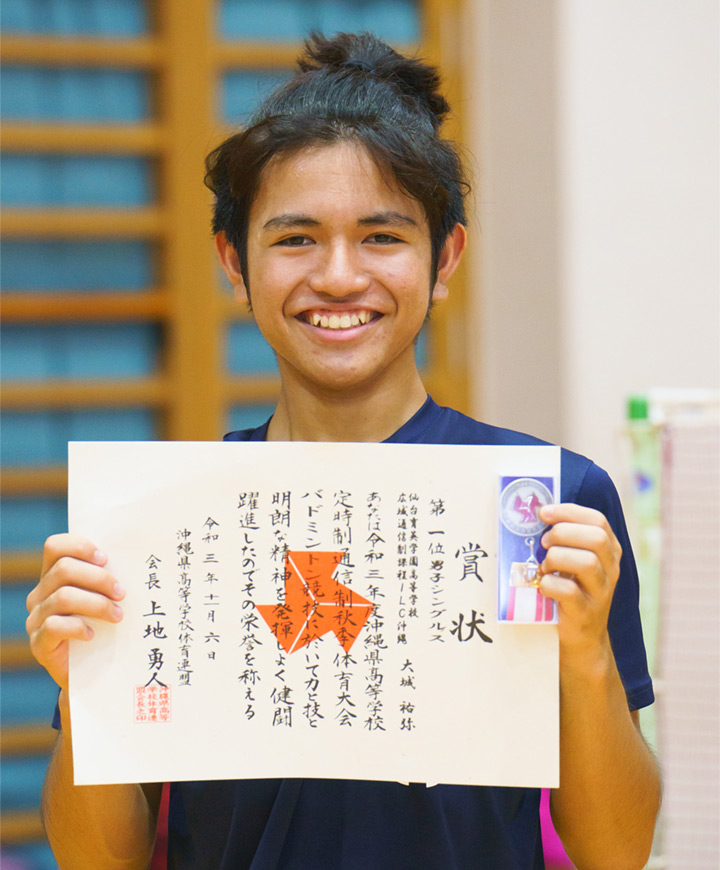 賞状
第一位 男子シングルス
仙台育英学園高等学校
広域通信制課程ILC沖縄 大城 祐弥
あなたは令和三年度沖縄県高等学校
定時制通信制秋季体育大会
バドミントン競技に於いて力と技と
明朗な精神を発揮しよく健闘
躍進したのでその栄誉を称える
令和三年十一月六日
沖縄県高等学校体育連盟
会長 上地勇人
沖縄県高等
学校体育連
盟会長之印